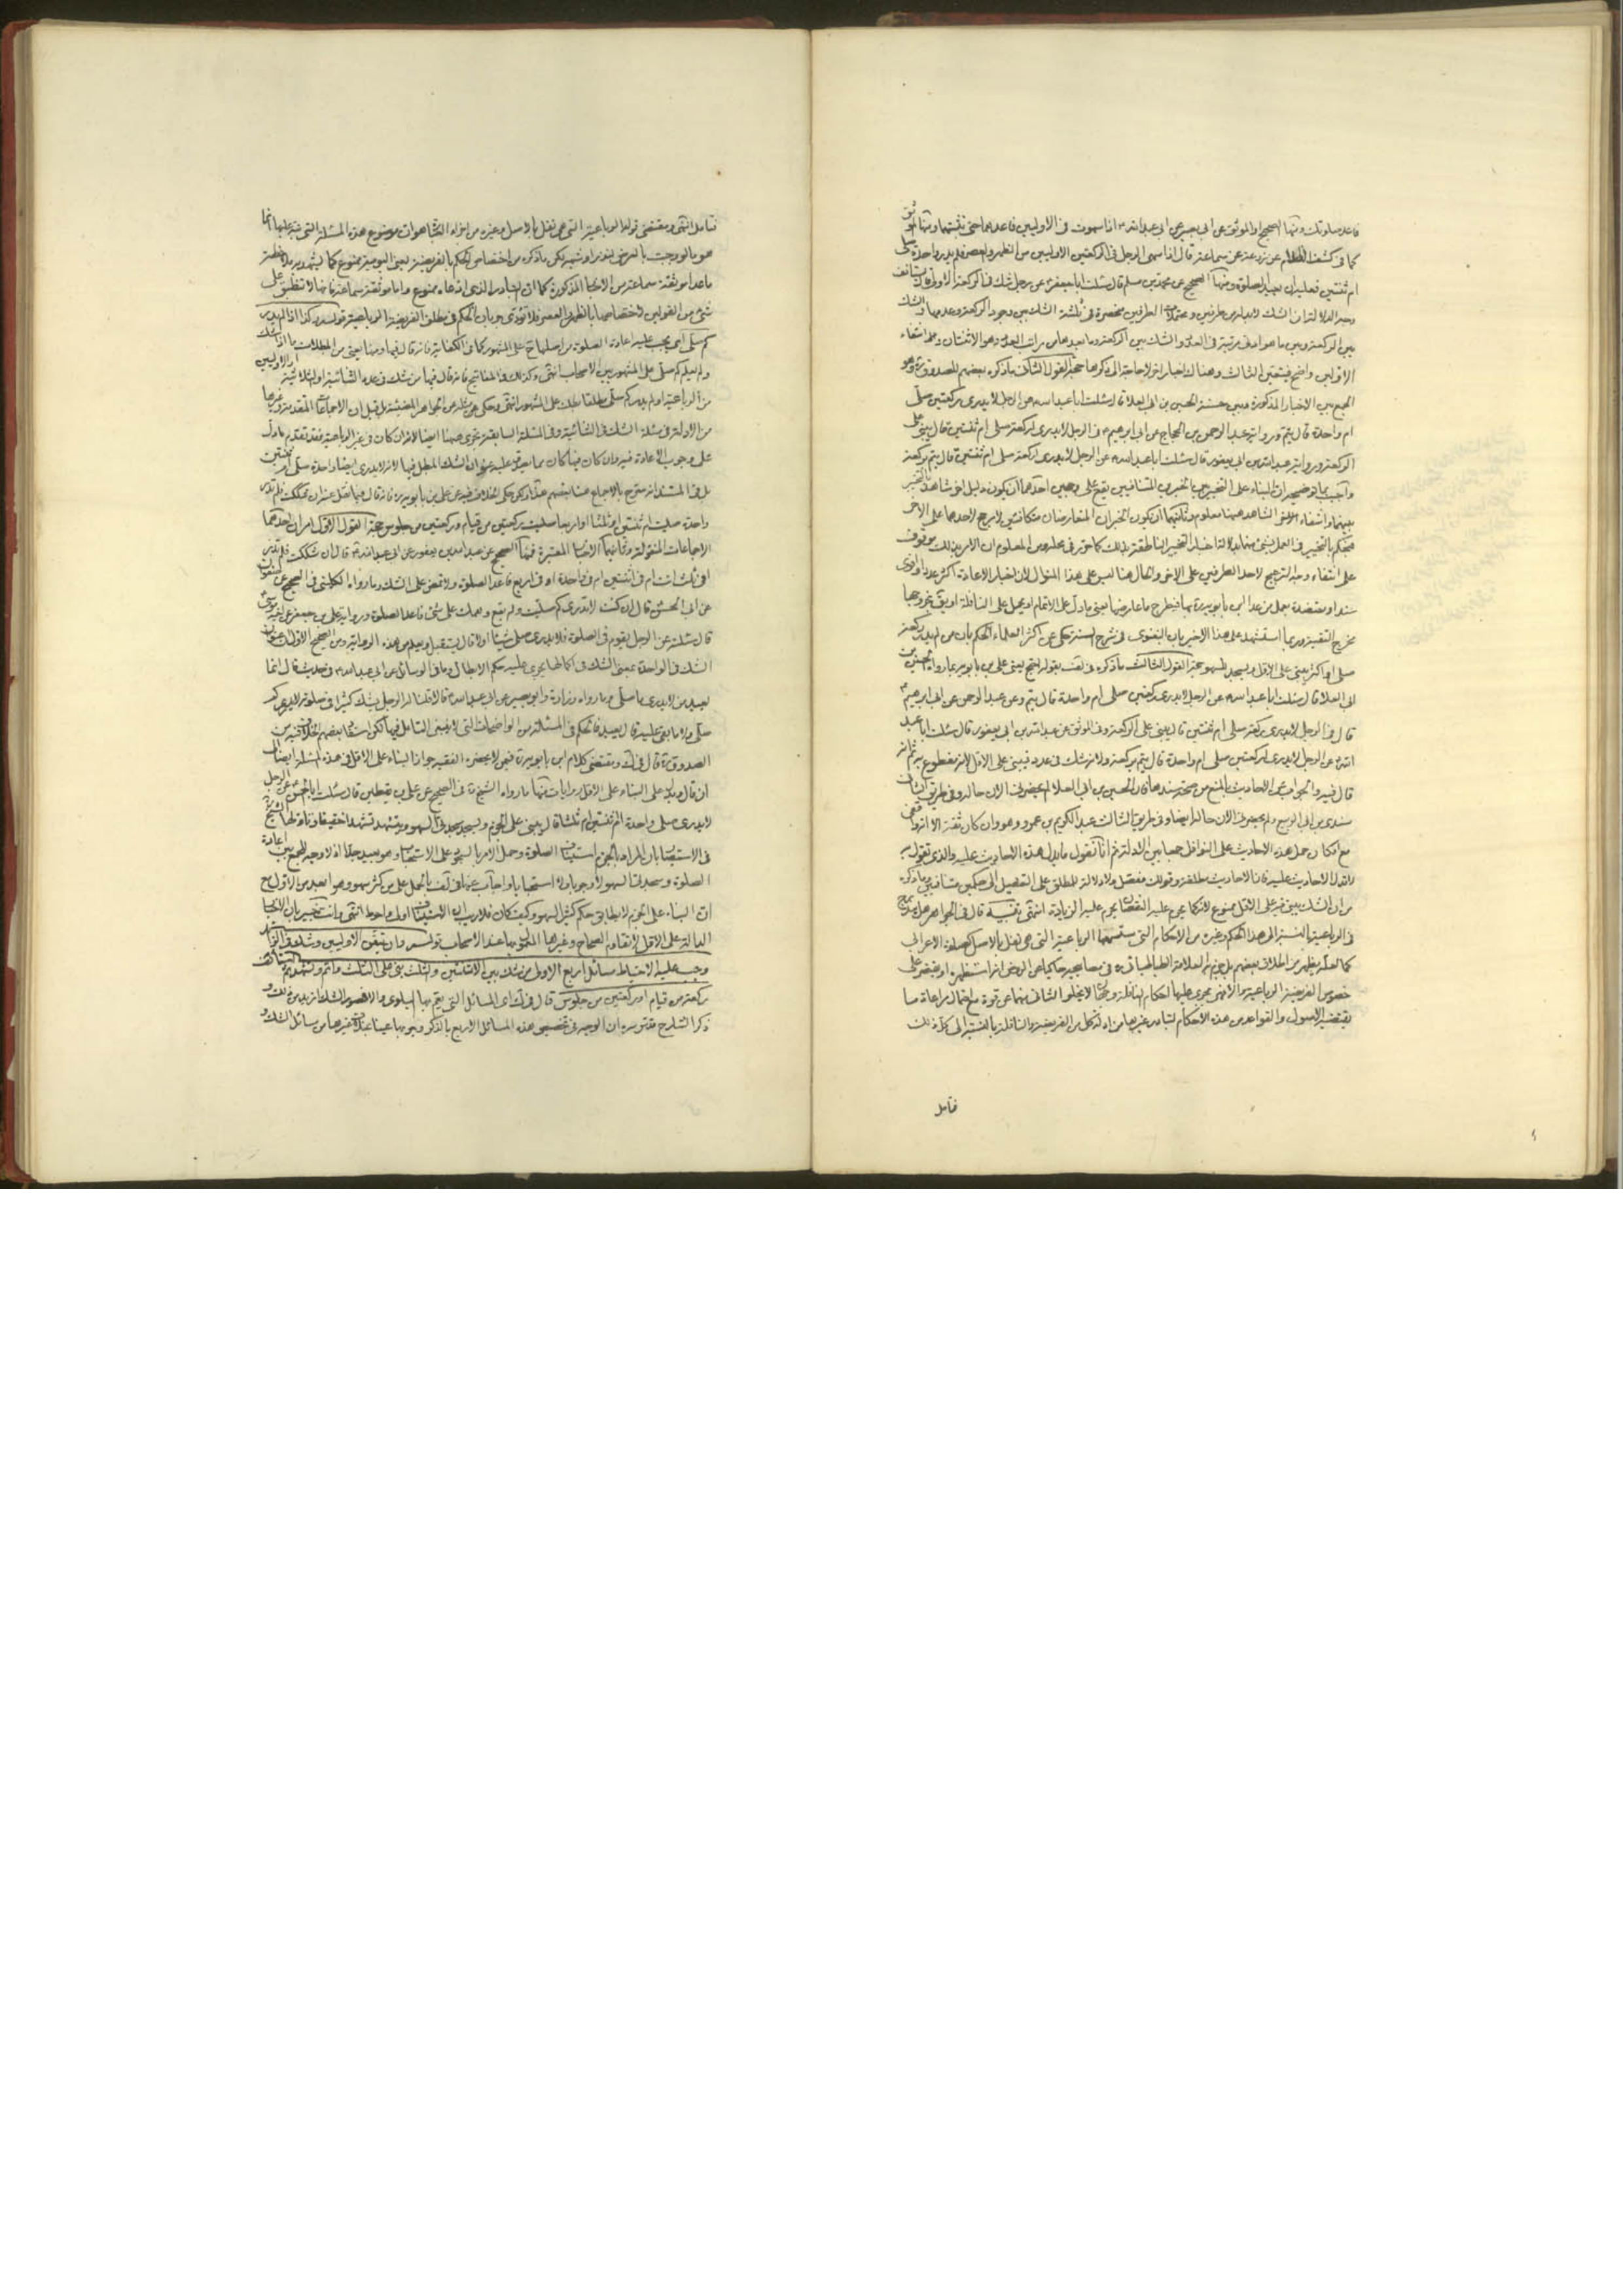 فاعد صلوتك ومنها الصحيح او الموثق عن ابي بصير عن ابي عبد الله اذا سهوت في الاوليين فاعدهما حتى تثبتهما ومنها الموثق
كما في كشف اللثام عن زرعة عن سماعة قال اذا سهى الرجل في الركعتين الاوليين من الظهر والعصر فلم يدر واحدة صلى
ام ثنتين فعليه ان يعيد الصلوة ومنها الصحيح عن محمد بن مسلم قال سئلت ابا جعفر عن رجل شك في الركعة الاولى قال يستانف
وجه الدلالة ان الشك لابد له من طرفين ومحتملات الطرفين منحصرة في ثلثة الشك بين وجود الركعة وعدمها والشك
بين الركعة وبين ما هو ادنى مرتبة في العدد والشك بين الركعة وما بعدها من مراتب العدد وهو الاثنتان وهكذا انتفاء
الاولين واضح فيتعين الثالث وهناك اخبار اخر لا حاجة الى ذكرها حجة القول الثاني ما ذكره بعضهم للصدوق وهو
الجمع بين الاخبار المذكورة وبين حسنة الحسين بن ابي العلا قال سئلت ابا عبد الله عن الرجل لا يدرى ركعتين صلى
ام واحدة قال يتم ورواية عبد الرحمن بن الحجاج عن ابي ابرهيم في الرجل لا يدرى اركعة صلى ام ثنتين قال يبنى على
الركعة ورواية عبد الله بن ابي يعفور قال سئلت ابا عبد الله عن الرجل لا يدرى اركعة صلى ام ثنتين قال يتم بركعة
واجيب بما توضيحه ان البناء على التخيير بين الخبرين المتنافيين يقع على وجهين احدهما ان يكون دليل اخر شاهد بالتخيير
بينهما وانتفاء الاخر الشاهد هيهنا معلوم وثانيهما ان يكون الخبران المتعارضان متكافئين لا مرجح لاحدهما على الاخر
فيحكم بالتخيير في العمل بشئ منهما بدلالة اخبار التخيير الناطقة بذلك كما حرر في محله ومن المعلوم ان الامر بذلك موقوف
على انتفاء وجه الترجيح لاحد الطرفين على الاخر والحال هنا ليس على هذا المنوال لان اخبار الاعادة اكثر عددا واقوى
سندا ومعتضدة بعمل من عدا ابن بابويه بها فيطرح ما عارضها يعنى ما دل على الاتمام او يحمل على النافلة او يق بخروجها
مخرج التقية وربما استشهد على هذا الاخير بان البغوى في شرح السنة حكى عن اكثر العلماء الحكم بان من لم يدر ركعة
صلى او اكثر يبنى على الاقل ويسجد للسهو حجة القول الثالث ما ذكره في لف بقوله احتج يعنى على بن بابويه بما رواه الحسين بن
ابي العلا قال سئلت ابا عبد الله عن الرجل لا يدرى ركعتين صلى ام واحدة قال يتم وعن عبد الرحمن عن ابي ابرهيم
قال في الرجل لا يدرى ركعة صلى ام ثنتين قال يبنى على الركعة وفي الموثق عن عبد الله بن ابي يعفور قال سئلت ابا عبد
الله عن الرجل لا يدرى اركعتين صلى ام واحدة قال يتم بركعة ولانه شك في عدد فيبنى على الاقل لانه مقطوع به ثم انه
قال فيه والجواب عن الاحاديث بالمنع من صحة سندها فان الحسين بن ابي العلا لم يحضرنى الان حاله وفي طريق الثانى
سندى بن الربيع ولم يحضرنى الان حاله ايضا وفي طريق الثالث عبد الكريم بن عمرو وهو وان كان ثقة الا انه واقفى
مع امكان حمل هذه الاحاديث على النوافل جمعا بين الادلة ثم انا نقول ما يدل هذه الاحاديث عليه والذى تقول به
لا تدل الاحاديث عليه فان الاحاديث مطلقة وقولك مفصل ولا دلالة للمطلق على التفصيل الى حكمين متنافيين وما ذكره
من ان الشك يبنى فيه على الاقل ممنوع لانه كما يحرم عليه النقصان يحرم عليه الزيادة انتهى تنبيه قال في الجواهر هل يندرج
في الرباعية بالنسبة الى هذا الحكم وغيره من الاحكام التى ستسمعها الرباعية التى هى نفل بالاصل كصلوة الاعرابى
كما لعله يظهر من اطلاق بعضهم بل جزم به العلامة الطباطبائى في مصابيحه حاكيا عن الروض انه استظهره او يقتصر على
خصوص الفريضة الرباعية والا فهى يجرى عليها احكام النافلة وجهان لا يخلو الثانى منهما عن قوة مع احتمال مراعاة ما
يقتضيه الاصول والقواعد من هذه الاحكام لتبادر غيرها من ادلة كل من الفريضة والنافلة بالنسبة الى كل ذلك
فتامل
فتامل انتهى ومقتضى قوله الرباعية التى هى نفل بالاصل وغيره من اجزاء الكتاب هو ان موضوع هذه المسئلة التى نبه عليها انما
هو ما لو وجبت بالعرض بنذر او شبهه لكن ما ذكره من اختصاص الحكم بالفريضة يعنى اليومية ممنوع كما يشهد به ملاحظة
ما عدا موثقة سماعة من الاخبار المذكورة كما ان التبادر الذى ادعاه ممنوع واما موثقة سماعة فانها لا تنطبق على
شئ من القولين لاختصاصها بالظهر والعصر فلا تؤدى جريان الحكم في مطلق الفريضة الرباعية قوله وكذا اذا لم يدر
كم صلى اى يجب عليه اعادة الصلوة من اصلها على المشهور كما في الكفاية فانه قال فيها ومنها يعنى من المبطلات ما اذا شك
ولم يعلم كم صلى على المشهور بين الاصحاب انتهى وكذلك في المفاتيح فانه قال فيها من شك في عدد الثنائية او الثلاثية او الاوليين
من الرباعية او لم يدر كم صلى مطلقا بطلت على المشهور انتهى وحكى مثله عن الجواهر المضيئة بل قيل ان الاجماعات المتقدمة وغيرها
من الادلة في مسئلة الشك في الثنائية وفي المسئلة السابقة تجرى هيهنا ايضا لانه ان كان في غير الرباعية فقد تقدم ما دل
على وجوب الاعادة فيه وان كان فيها كان مما يصدق عليه عنوان الشك المبطل فيها لانه لا يدرى ايضا واحدة صلى ام ثنتين
بل في المستند انه صرح بالاجماع هنا بعضهم هذا ولكن حكى الخلاف فيه عن على بن بابويه فانه قال فيما نقل عنه ان شككت فلم تدر
واحدة صليت ام ثنتين ام ثلثا او اربعا صليت ركعتين من قيام وركعتين من جلوس حجة القول الاول امران احدهما
الاجماعات المنقولة وثانيهما الاخبار المعتبرة فمنها الصحيح عن عبد الله بن ابي يعفور عن ابي عبد الله قال ان شككت فلم تدر
افي ثلث انت ام في اثنتين ام في واحدة او في اربع فاعد الصلوة ولا تمض على الشك وما رواه الكلينى في الصحيح عن صفوان
عن ابي الحسن قال ان كنت لا تدرى كم صليت ولم يقع وهمك على شئ فاعد الصلوة ورواية على بن جعفر عن اخيه موسى
قال سئلته عن الرجل يقوم في الصلوة فلا يدرى صلى شيئا ام لا قال يستقبل ويعلم من هذه الرواية ومن الصحيح الاول
الشك في الواحدة بمعنى الشك في اكمالها يجرى عليه حكم الابطال وما في الوسائل عن ابي عبد الله في حديث قال انما
يعيد من لا يدرى ما صلى وما رواه زرارة وابو بصير عن ابي عبد الله قالا قلنا له الرجل يشك كثيرا في صلوته لا يدرى كم
صلى ولا ما بقى عليه قال يعيد فالحكم في المسئلة من الواضحات التى لا ينبغى التامل فيها لكن استفاد بعضهم الخلاف فيه من
الصدوق قال في ك ومقتضى كلام ابن بابويه في من لا يحضره الفقيه جواز البناء على الاقل في هذه المسئلة ايضا الى
ان قال ويدل على البناء على الاقل روايات منها ما رواه الشيخ في الصحيح عن على بن يقطين قال سئلت ابا الحسن عن الرجل
لا يدرى صلى واحدة ام ثنتين ام ثلثا قال يبنى على الجزم ويسجد سجدتى السهو ويتشهد تشهدا خفيفا وتاولها الشيخ
في الاستبصار بان المراد بالجزم استيناف الصلوة وحمل الامر بالسجود على الاستحباب وهو بعيد جدا اذ لا وجه للجمع بين اعادة
الصلوة وسجدتى السهو لا وجوبا ولا استحبابا واجاب عنها في لف بالحمل على من كثر سهوه وهو ابعد من الاول مع
ان البناء على الجزم لا يطابق حكم كثير السهو وكيف كان فلا ريب ان الاستيناف اولى واحوط انتهى وانت خبير بان الاخبار
الدالة على الاقل لا تقاوم الصحاح وغيرها المعمول بها عند الاصحاب قوله وان تيقن الاوليين وشك في الزائد
وجب عليه الاحتياط ومسائله اربع الاولى من شك بين الاثنتين والثلث بنى على الثلث واتم وتشهد وسلم ثم استانف
ركعة من قيام او ركعتين من جلوس قال في ك اى المسائل التى يعم بها البلوى والا فصور الشك ازيد من ذلك و
ذكر الشارح قدس سره ان الوجه في تخصيص هذه المسائل الاربع بالذكر وجوبها عينا بخلاف غيرها من مسائل الشك و